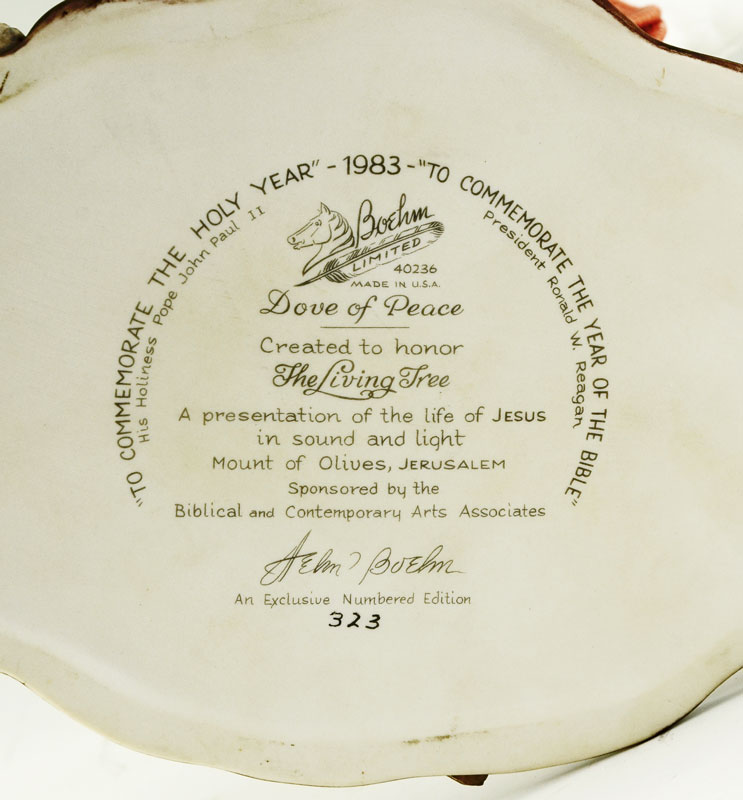 "TO COMMEMORATE THE HOLY YEAR" - 1983 - "TO COMMEMORATE THE YEAR OF THE BIBLE"
His Holiness Pope John Paul II
President Ronald W. Reagan
Boehm
LIMITED
40236
MADE IN U.S.A.
Dove of Peace
Created to honor
The Living Tree
A presentation of the life of JESUS
in sound and light
Mount of Olives, JERUSALEM
Sponsored by the
Biblical and Contemporary Arts Associates
Helen Boehm
An Exclusive Numbered Edition
323